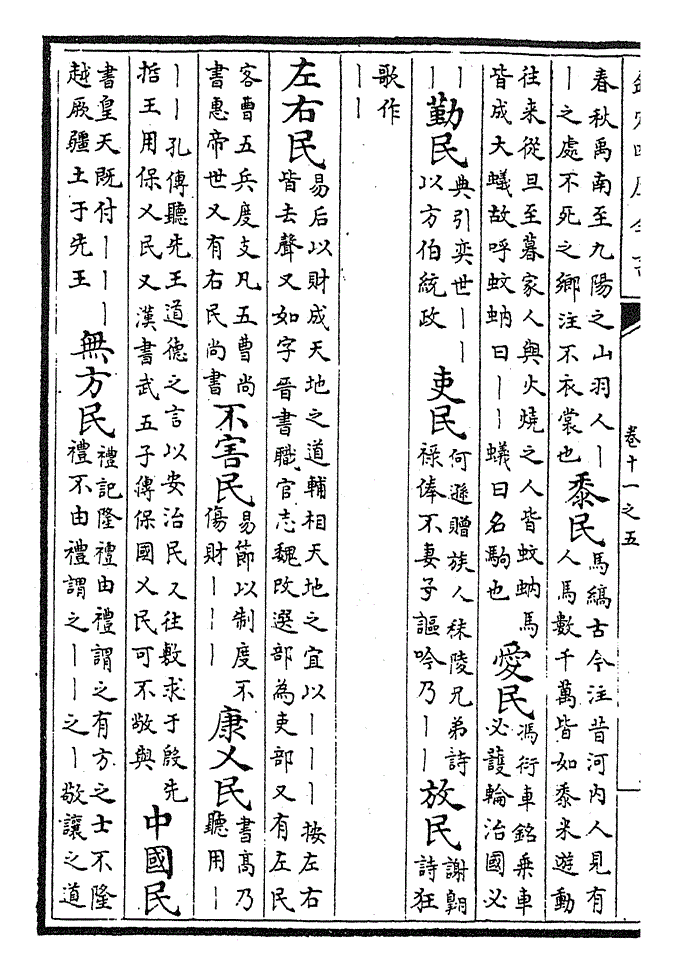 卷十一之五
春秋禹南至九陽之山羽人丨
丨之處不死之鄉注不衣裳也
黍民
馬縞古今注昔河內人見有
人馬數千萬皆如黍米遊動
往来從旦至暮家人與火燒之人皆蚊蚋馬
皆成大蟻故呼蚊蚋曰丨丨蟻曰名駒也
愛民
馮衍車銘乘車
必護輪治國必
丨丨
勤民
典引奕世丨丨
以方伯統政
吏民
何遜贈族人秣陵兄弟詩
祿俸不妻子謳吟乃丨丨
放民
謝翺
詩狂
歌作
丨丨
左右民
易后以財成天地之道輔相天地之宜以丨丨丨按左右
皆去聲又如字晉書職官志魏改選部為吏部又有左民
客曹五兵度支凡五曹尚
書惠帝世又有右民尚書
不害民
易節以制度不
傷財丨丨丨
康乂民
書髙乃
聽用丨
丨丨孔傳聽先王道德之言以安治民又往敷求于殷先
哲王用保乂民又漢書武五子傳保國乂民可不敬與
中國民
書皇天既付丨丨丨
越厥疆土于先王
無方民
禮記隆禮由禮謂之有方之士不隆
禮不由禮謂之丨丨之丨敬讓之道